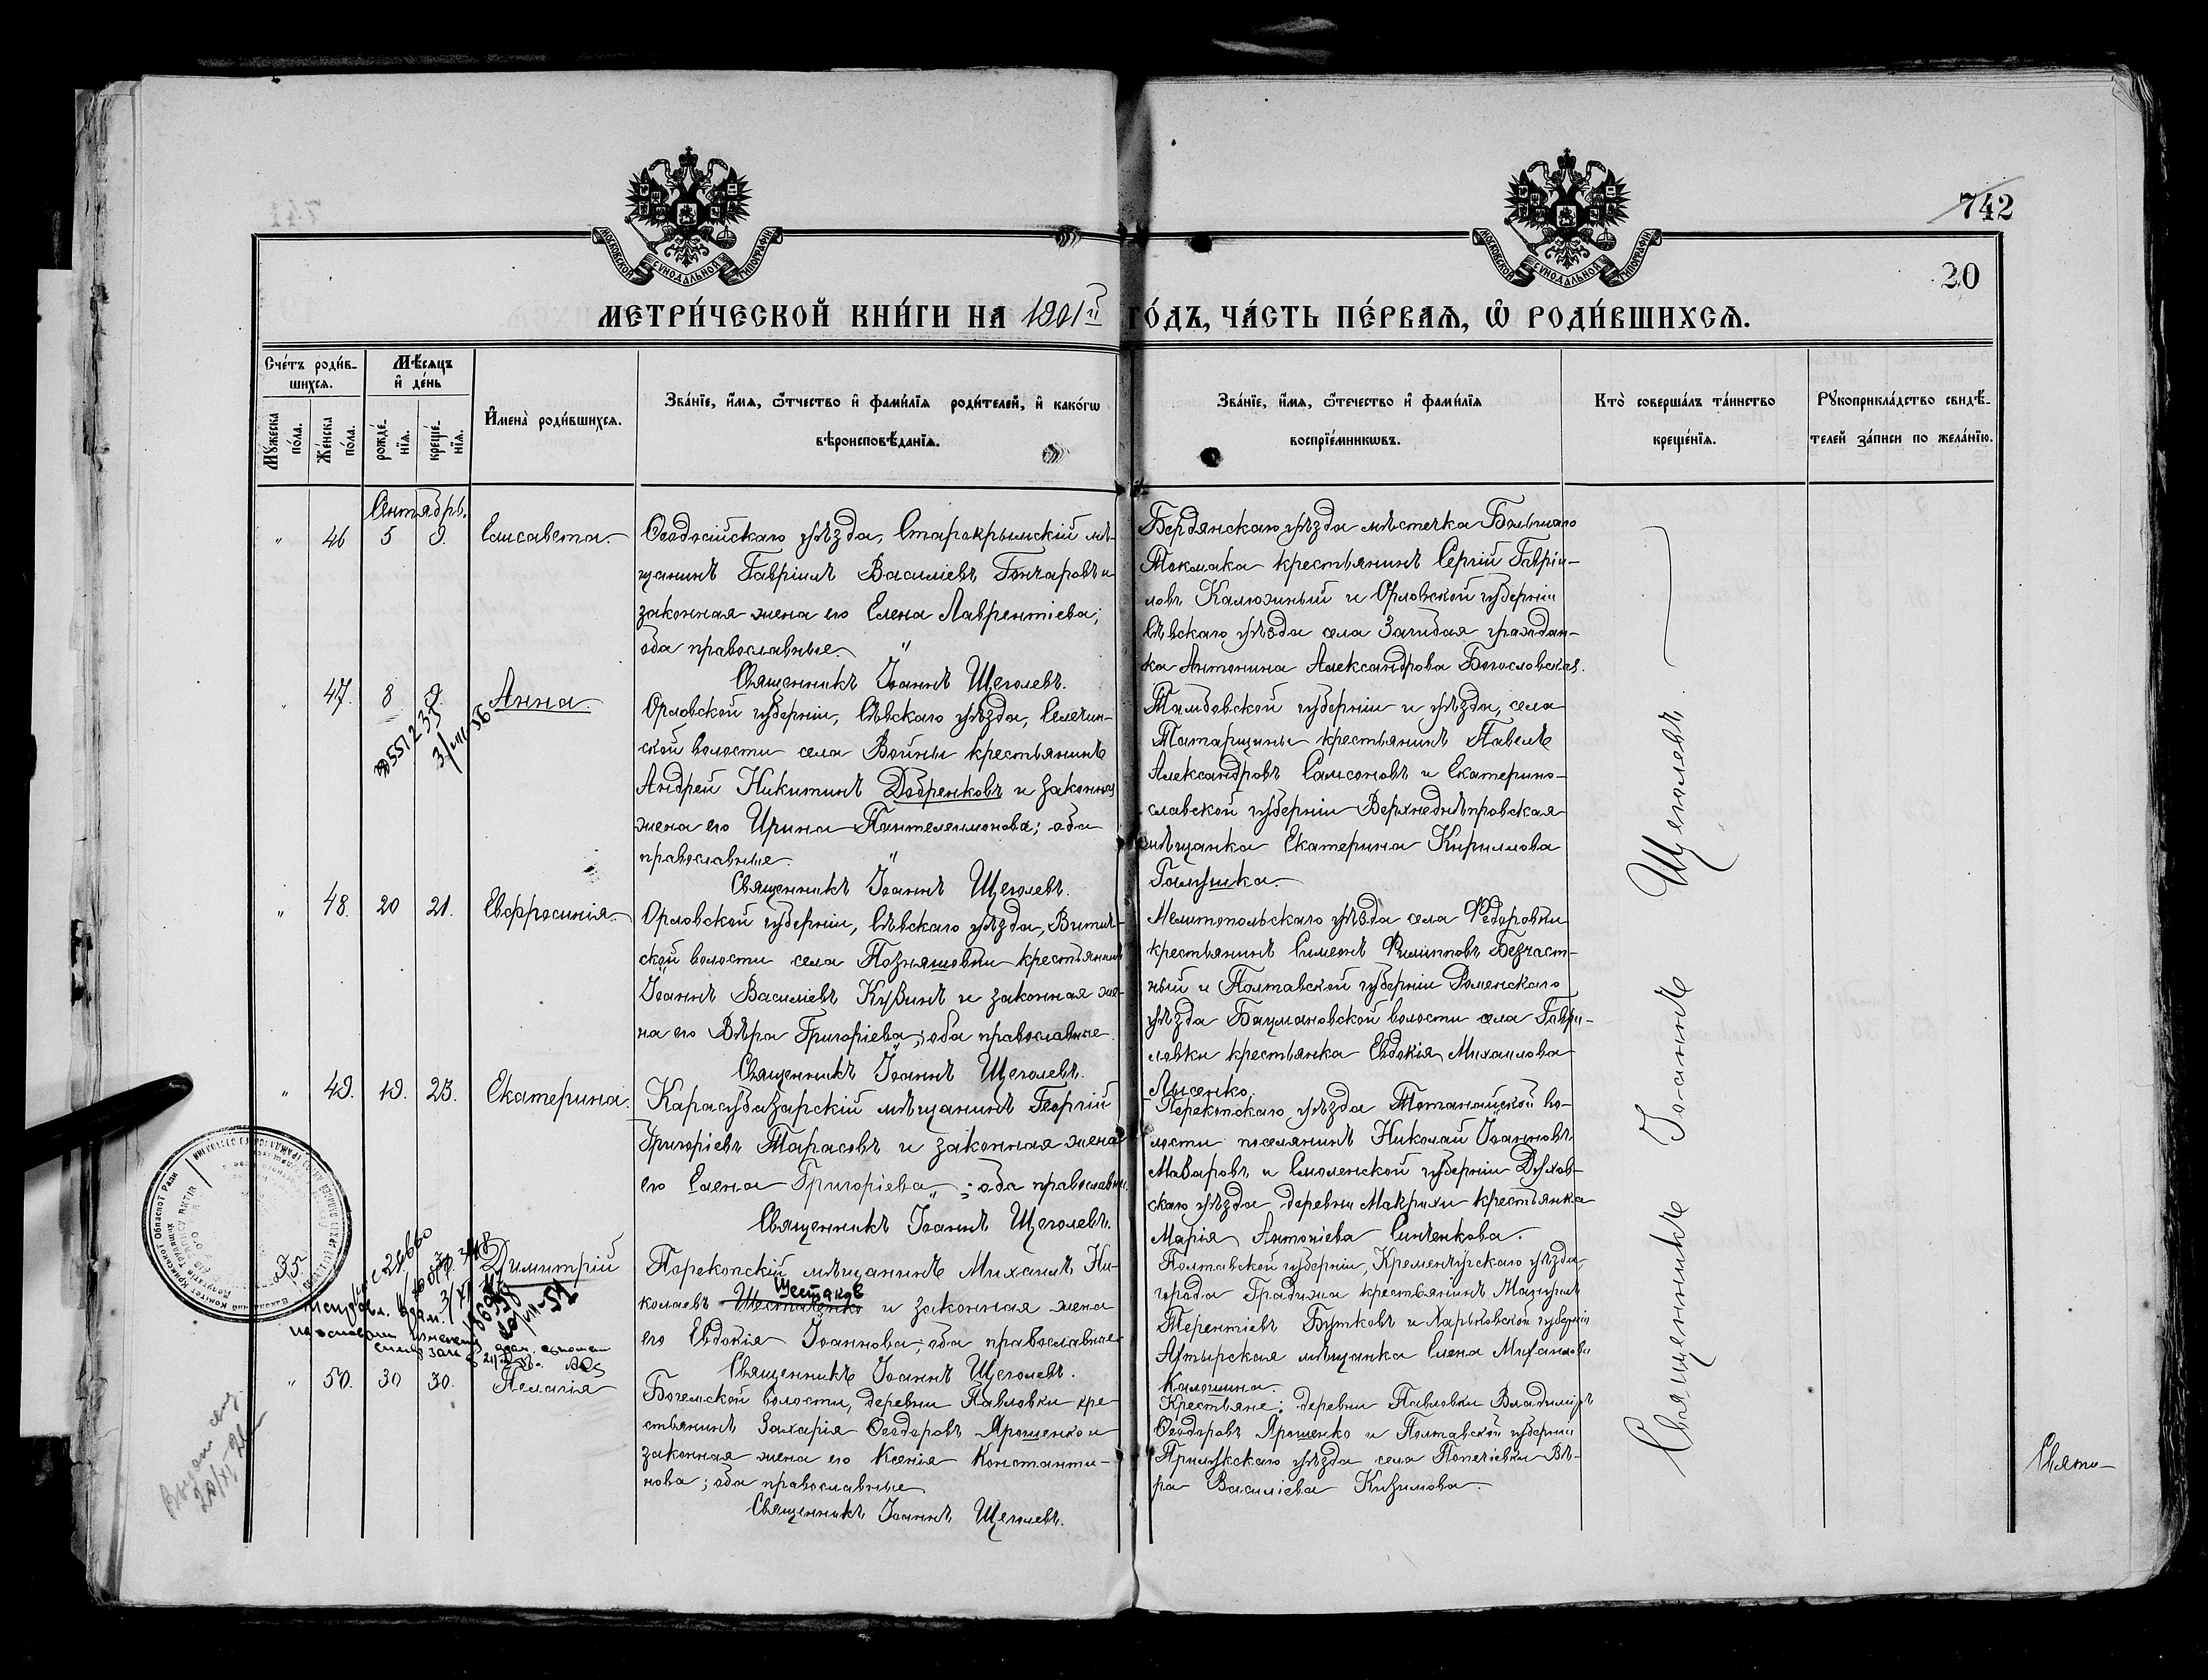 742
20
МОСКОВСКОЙ СѴНОДАЛЬНОЙ ТИПОГРАФІИ
МОСКОВСКОЙ СѴНОДАЛЬНОЙ ТИПОГРАФІИ
МЕТРИ́ЧЕСКОЙ КНИ́ГИ НА 1901й ГО́ДЪ, ЧА́СТЬ ПЕ́РВАЯ, Ѿ РОДИ́ВШИХСЯ.
Сче́тъ роди́вшихся.
Мꙋ́жеска по́ла.
Же́нска по́ла.
Мѣ́сяцъ и҆ де́нь
рожде́нїя.
креще́нїя.
И҆мена̀ роди́вшихся.
Зва́нїе, и҆́мя, ѻ҆́тчество и҆ фами́лїя роди́телей, и҆ како́гѡ
вѣроисповѣ́данїя.
Зва́нїе, и҆́мя, ѻ҆́течество и҆ фами́лїя
воспрїе́мникѡвъ.
Кто̀ соверша́лъ та́инство
креще́нїя.
Рꙋкоприкла́дство свидѣ́-
телей за́писи по жела́нїю.
Сентябрь.
" 46 5 9. Елисавета.
Ѳеодосійскаго уѣзда, Старокрымскій мѣ-
щанинъ Гавріилъ Василіевъ Гончаровъ и
законная жена его Елена Лаврентіева;
оба православные.
Священникъ Іоаннъ Щеголевъ.
Бердянскаго уѣзда мѣстечка Большаго
Токмака крестьянинъ Сергій Гаврiи-
ловъ Калюжный и Орловской губерніи
Сѣвскаго уѣзда села гражда-
ка Антонина Александрова Богословская.
" 47. 8 9. Анна
3/VIII 56
Орловской губерніи, Сѣвскаго уѣзда, Селечин-
ской волости села Войны крестьянинъ
Андрей Никитинъ Добренковъ и законная
жена его Ирина Пантелеимонова; оба
православные.
Священникъ Іоаннъ Щеголевъ.
Тамбовской губерніи и уѣзда, села
Татарщины крестьянинъ Павелъ
Александровъ Самсоновъ и Екатерино-
славской губерніи Верхнеднѣпровская
мѣщанка Екатерина Кириллова
Галушка.
" 48. 20 21. Евфросинія.
Орловской губерніи, Сѣвскаго уѣзда,
ской волости села крестьянинъ
Іоаннъ Василіевъ и законная же-
на его Вѣра Григоріева; оба православные.
Священникъ Іоаннъ Щеголевъ.
Мелитопольскаго уѣзда села Ѳедоровки
крестьянинъ Симеонъ Филипповъ Безчаст-
ный и Полтавской губерніи Роменскаго
уѣзда волости села Гаври-
ловки крестьянка Евдокія Михаилова
Лысенко.
" 49. 19. 23. Екатерина.
Карасубазарскій мѣщанинъ Георгій
Григоріевъ Тарасовъ и законная жена
его Елена Григоріева; оба православные.
Священникъ Іоаннъ Щеголевъ.
Перекопскаго уѣзда во-
лости поселянинъ Николай Іоанновъ
и Смоленской губерніи Духов-
скаго уѣзда деревни крестьянка
Марія Антоніева
35 Димитрій
Перекопскій мѣщанинъ Михаилъ Ни-
Шестаковъ
колаевъ Шесталенко и законная жена
его Евдокія Іоаннова; оба православные.
Священникъ Іоаннъ Щеголевъ.
Полтавской губерніи, Кременчугскаго уѣзда,
города Градижа крестьянинъ
Терентіевъ Бутковъ и Харьковской губерніи
Ахтырская мѣщанка Елена Михаилова
Калошина.
" 50. 30 30. Пелагія
Богемской волости, деревни Павловки кре-
стьянинъ Захарія Ѳеодоровъ Ярошенко и
законная жена его Ксенія Константи-
нова; оба православные
Священникъ Іоаннъ Щеголевъ.
Крестьяне: деревни Павловки Владиміръ
Ѳеодоровъ Ярошенко и Полтавской губерніи
Прилукскаго уѣзда села Вѣ-
ра Василіева
Священникъ Іоаннъ Щеголевъ.
Свято-